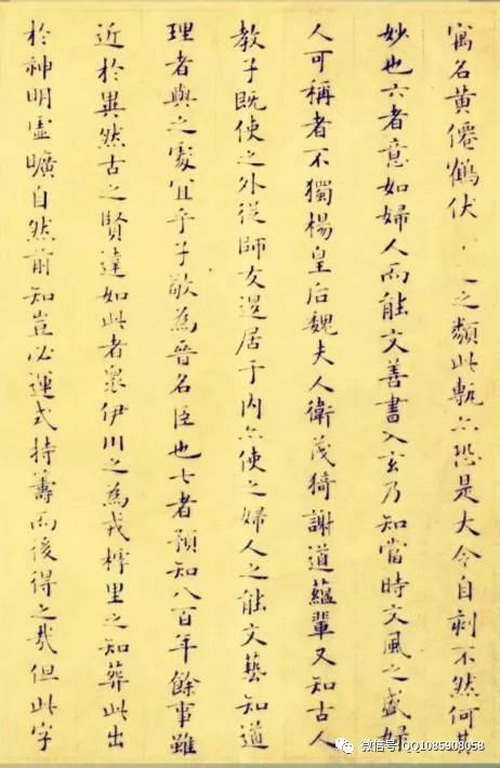 寓名黄僊鶴伏之類此甎亦恐是大令自刻不然何其
妙也六者意如婦人而能文善書入玄乃知當時文風之盛婦
人可稱者不獨楊皇后魏夫人衛茂猗謝道蘊輩又知古人
教子既使之外從師友退居于内亦使之婦人之能文藝知道
理者與之處宜乎子敬為晉名臣也七者預知八百年餘事雖
近於異然古之賢達如此者衆伊川之為戎樗里之知葬此出
於神明虛曠自然前知豈必運式持籌而後得之哉但此字
微信号:QQ1085908058